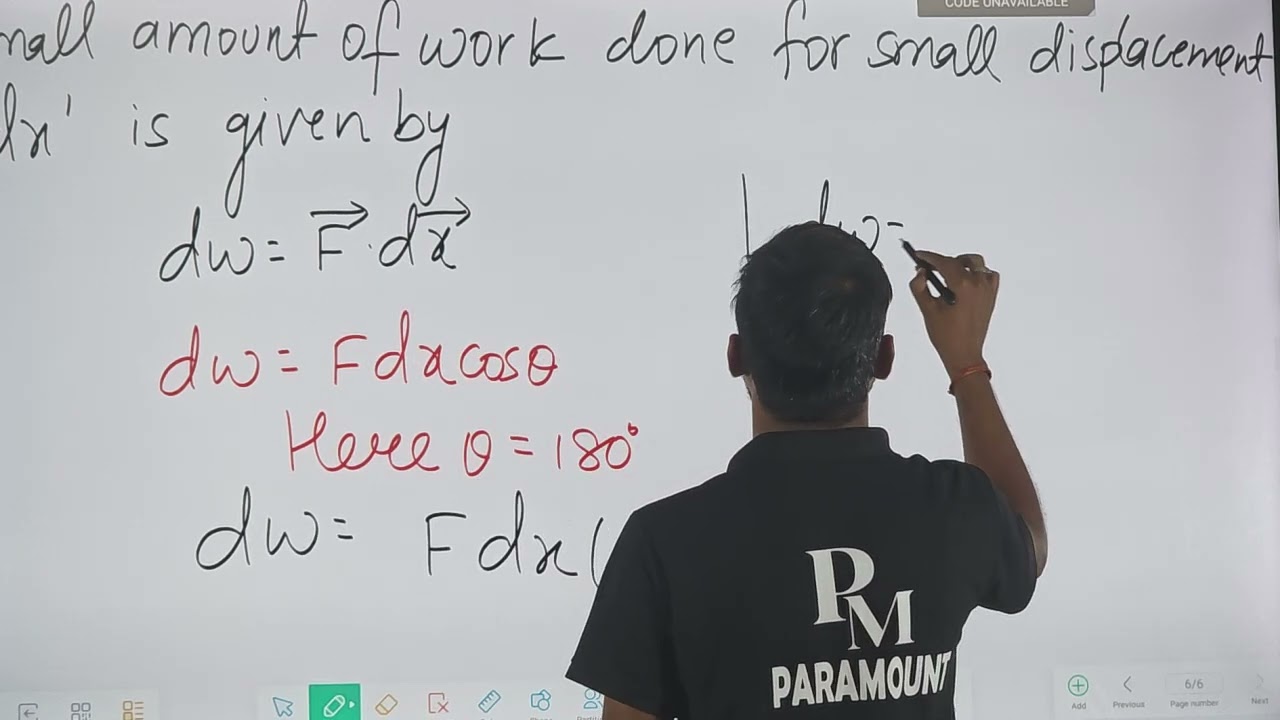 CODE UNAVAILABLE
amount of work done for small displacement
is given by
dw = F⃗ · dx⃗
dw =
dw = F dx cosθ
Here θ = 180°
dw = F dx (
PM
PARAMOUNT
Add
Previous
6/6
Page number
Next